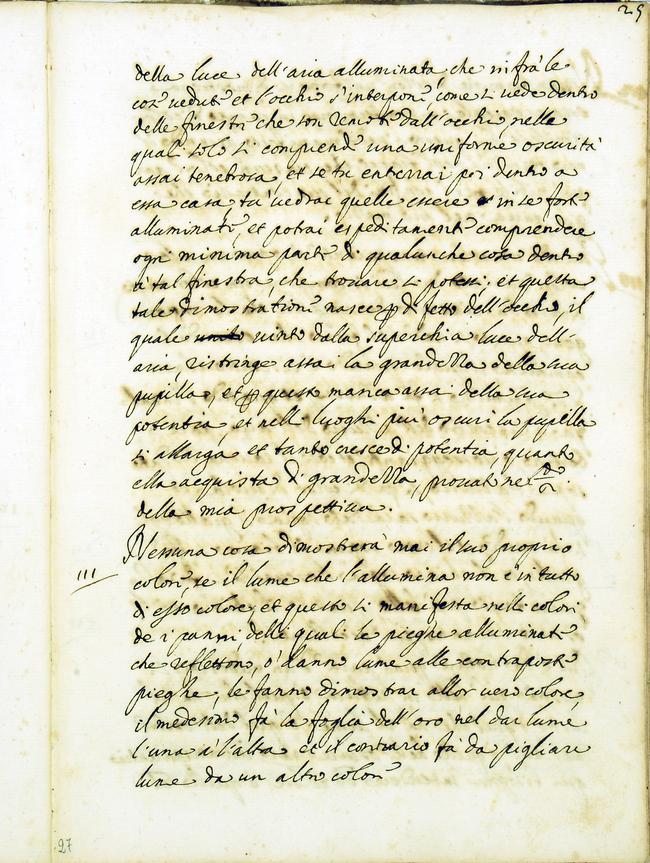 29
della luce dell'aria alluminata, che infrà le
cose uedute et l'occhio s'interpone, come si uede dentro
delle finestre che son remote dall'occhio, nelle
quali solo si comprende una uniforme oscurità
assai tenebrosa, et se tu enterrai poi dentro a
essa casa, tù uedrai quelle essere in se forte
alluminate, et potrai espeditamente comprendere
ogni minima parte di qualunche cosa dentro
à tal finestra, che trouare si potessi, et questa
tale dimostratione nasce p difetto dell'occhio, il
quale uinto dalla superchia luce dell'
aria, ristringe assai la grandezza della sua
pupilla, et p questo manca assai della sua
potentia, et nelli luoghi più oscuri la pupilla
si allarga et tanto cresce di potentia, quanto
ella acquista di grandezza, prouato nel
della mia prospettiua.
Nessuna cosa dimostrerà mai il suo proprio
III
colore, se il lume che l'allumina non è in tutto
di esso colore, et questo si manifesta nelli colori
de i panni, delli quali le pieghe alluminate
che reflettono, ò danno lume alle contraposte
pieghe, le fanno dimostrar il lor uero colore,
il medesimo fà la foglia dell'oro nel dar lume
l'una à l'altra et il contrario fà da pigliare
lume da un altro colore
27